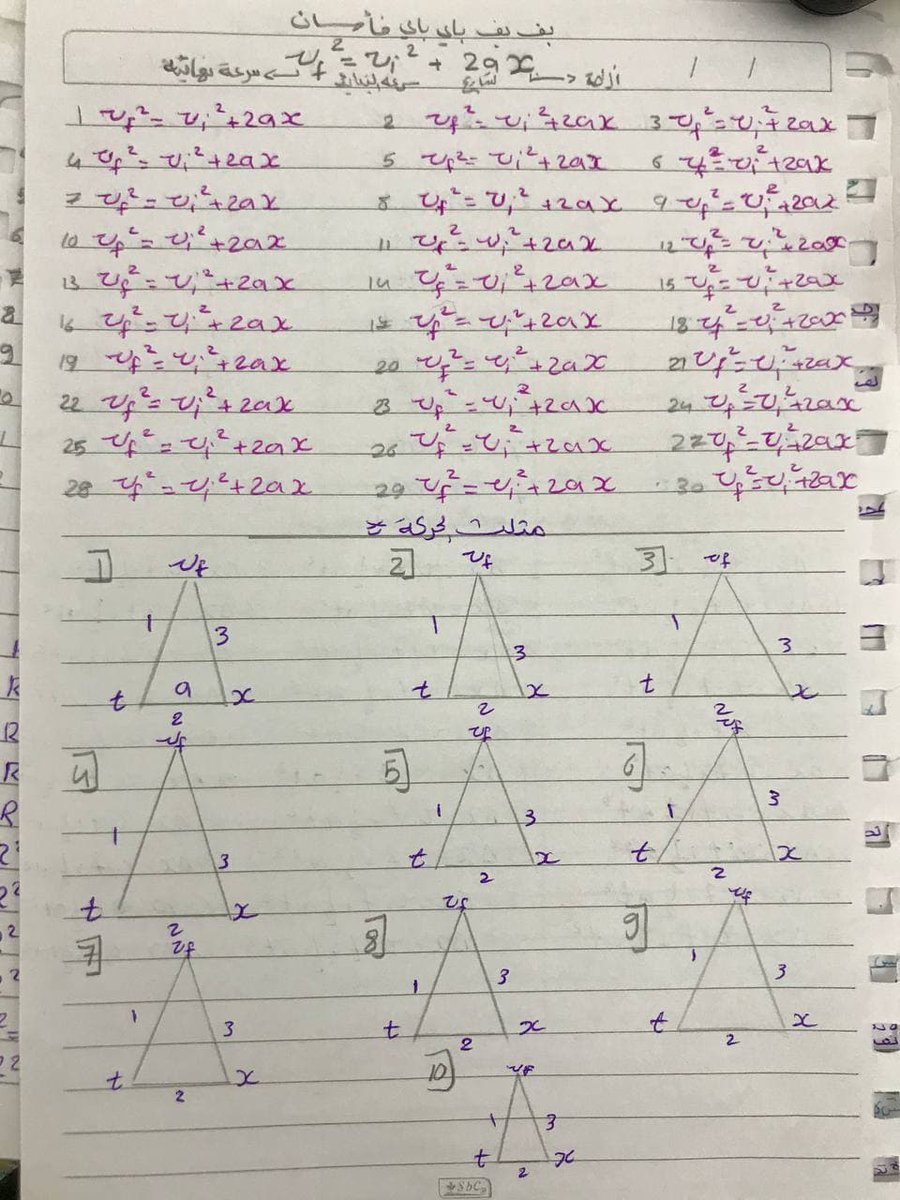 بف بف باي باي فأحسان
vf² = vi² + 2ax
سرعة نهائية تسارع ازاحة
1 vf² = vi² + 2ax 2 vf² = vi² + 2ax 3 vf² = vi² + 2ax
4 vf² = vi² + 2ax 5 vf² = vi² + 2ax 6 vf² = vi² + 2ax
7 vf² = vi² + 2ax 8 vf² = vi² + 2ax 9 vf² = vi² + 2ax
10 vf² = vi² + 2ax 11 vf² = vi² + 2ax 12 vf² = vi² + 2ax
13 vf² = vi² + 2ax 14 vf² = vi² + 2ax 15 vf² = vi² + 2ax
16 vf² = vi² + 2ax 17 vf² = vi² + 2ax 18 vf² = vi² + 2ax
19 vf² = vi² + 2ax 20 vf² = vi² + 2ax 21 vf² = vi² + 2ax
22 vf² = vi² + 2ax 23 vf² = vi² + 2ax 24 vf² = vi² + 2ax
25 vf² = vi² + 2ax 26 vf² = vi² + 2ax 27 vf² = vi² + 2ax
28 vf² = vi² + 2ax 29 vf² = vi² + 2ax 30 vf² = vi² + 2ax
مثلث
1 vf 2 vf 3 vf
1 3 1 3 1 3
t a x t x t x
2 2 2
4 vf 5 vf 6 vf
1 3 1 3 1 3
t x t x t x
2 2 2
7 vf 8 vf 9 vf
1 3 1 3 1 3
t x t x t x
2 2 2
10 vf
1 3
t x
2